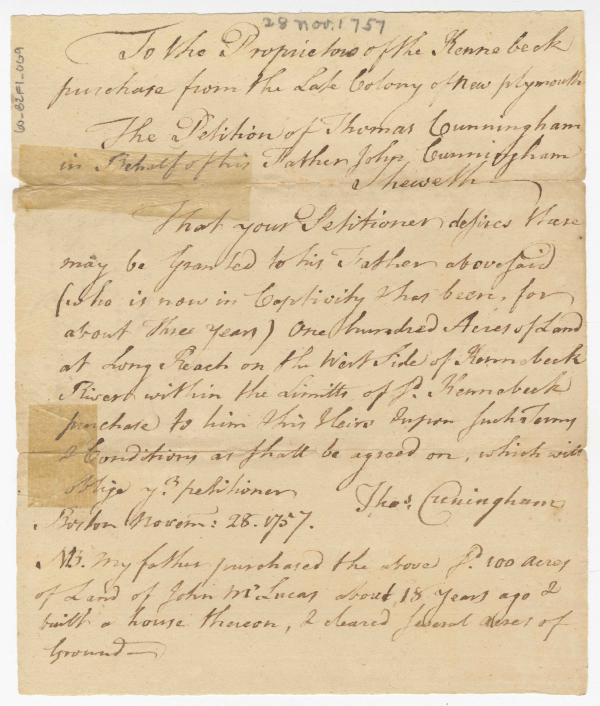 28 Nov. 1757
To the Proprietors of the Kennebeck
purchase from the Late Colony of new plymouth
The Petition of Thomas Cunningham
in Behalf of his Father John Cunningham
Sheweth
That your Petitioner desires there
may be Granted to his Father abovesaid
(who is now in Captivity & has been, for
about three years) One hundred Acres of Land
at Long Reach on the West Side of Kennebeck
River within the Limitts of sd. Kennebeck
purchase to him & his Heirs &upon such Terms
& Conditions as shall be agreed on, which will
oblige yr. petitioner
Thos. Cuningham
Boston Novem: 28. 1757.
NB. My father purchased the above sd. 100 acres
of Land of John McLucas about 18 years ago &
built a house thereon, & cleared several acres of
Ground